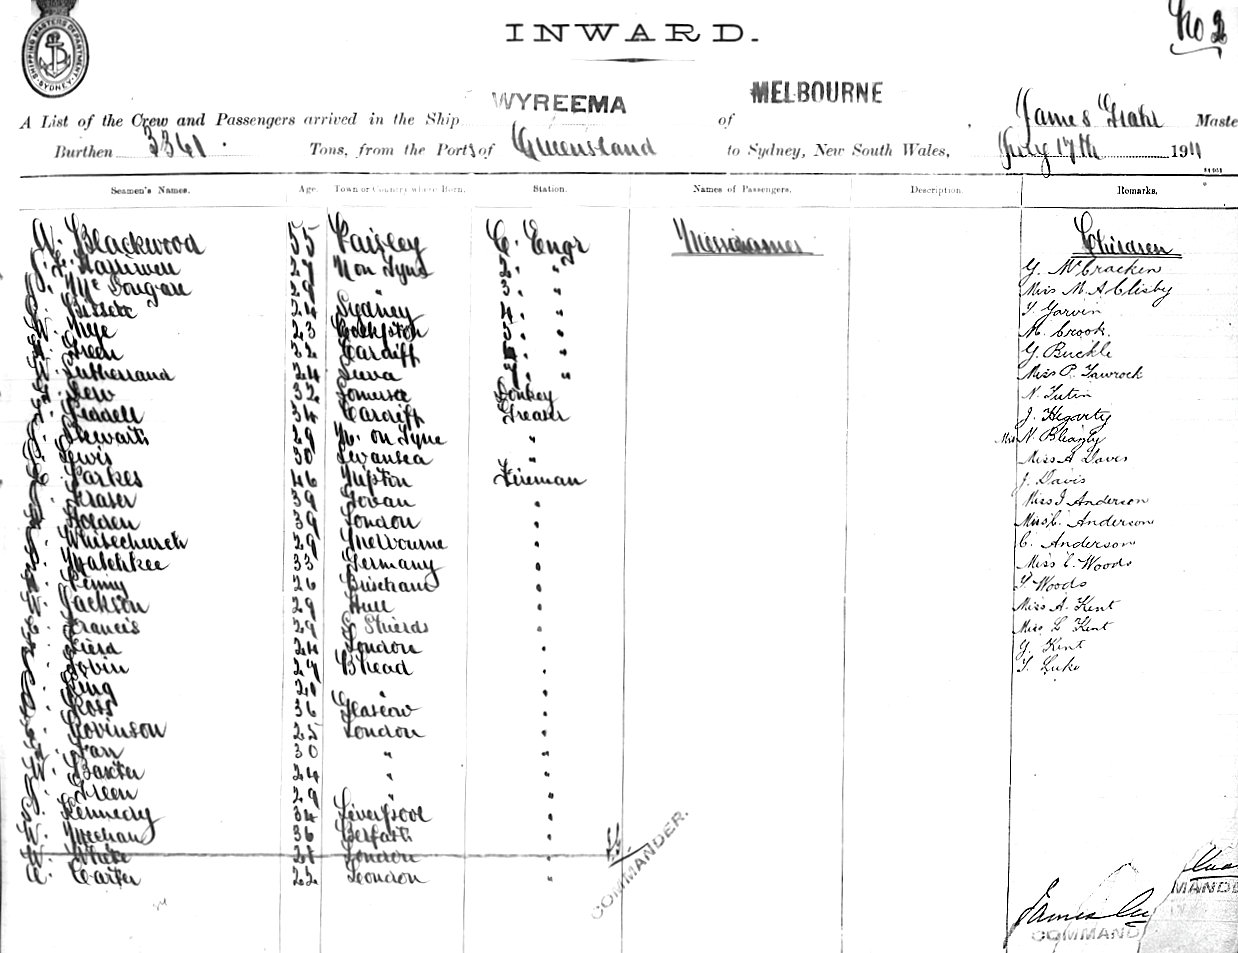 No 2
SHIPPING MASTERS DEPARTMENT SYDNEY
INWARD.
WYREEMA MELBOURNE
A List of the Crew and Passengers arrived in the Ship of , James Maste
Burthen 3361 . Tons, from the Ports of Queensland to Sydney, New South Wales, July 17th 1911
Seamen's Names. Age. Town or Country where Born. Station. Names of Passengers. Description. Remarks.
W. Blackwood 55 Paisley C. Engr Children
27 N on Tyne 2. " G. McCracken
McDougall 29 " 3. " Miss M. A. Clisby
Bissett 24 Sydney 4. " T Garvin
Nige 23 5. " M. Crook.
Green 32 Cardiff 6. " G. Buckle
Sutherland 24 Suva 7. " Miss P. Lawrock
32 Somerset Donkey N. Tutin
Liddell 34 Cardiff Greaser J. Hegarty
Stewart 29 N. on Tyne " Miss N. Bleazby
Lewis 30 Swansea " Miss A Davis
Parkes 46 Tipton Fireman J. Davis
Fraser 39 Govan " Miss I Anderson
Holden 39 London " Miss C. Anderson
Whitechurch 29 Melbourne " C. Anderson
33 Germany " Miss C. Woods
Penny 26 Brisbane " T Woods
Jackson 29 Hull " Miss A. Kent
Francis 29 S Shields " Miss L Kent
24 London " G. Kent
Tobin 27 B'head " T. Luke
King 21 " "
Ross 36 Glasgow "
Robinson 25 London "
Farr 30 " "
W. Baxter 24 " "
Green 29 " "
Kennedy 34 Liverpool "
W. Meehan 36 Belfast "
W. White 28 London "
C. Carter 22 London "
COMMANDER.
James
COMMAND
MANDE